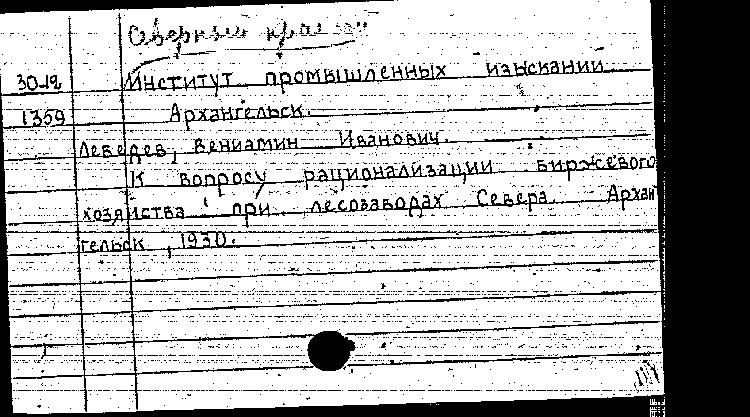 Северный край
30-12 Институт промышленных изысканий
1359 Архангельск.
Лебедев, Вениамин Иванович.
К вопросу рационализации биржевого
хозяйства при лесозаводах Севера. Архан
гельск, 1930.